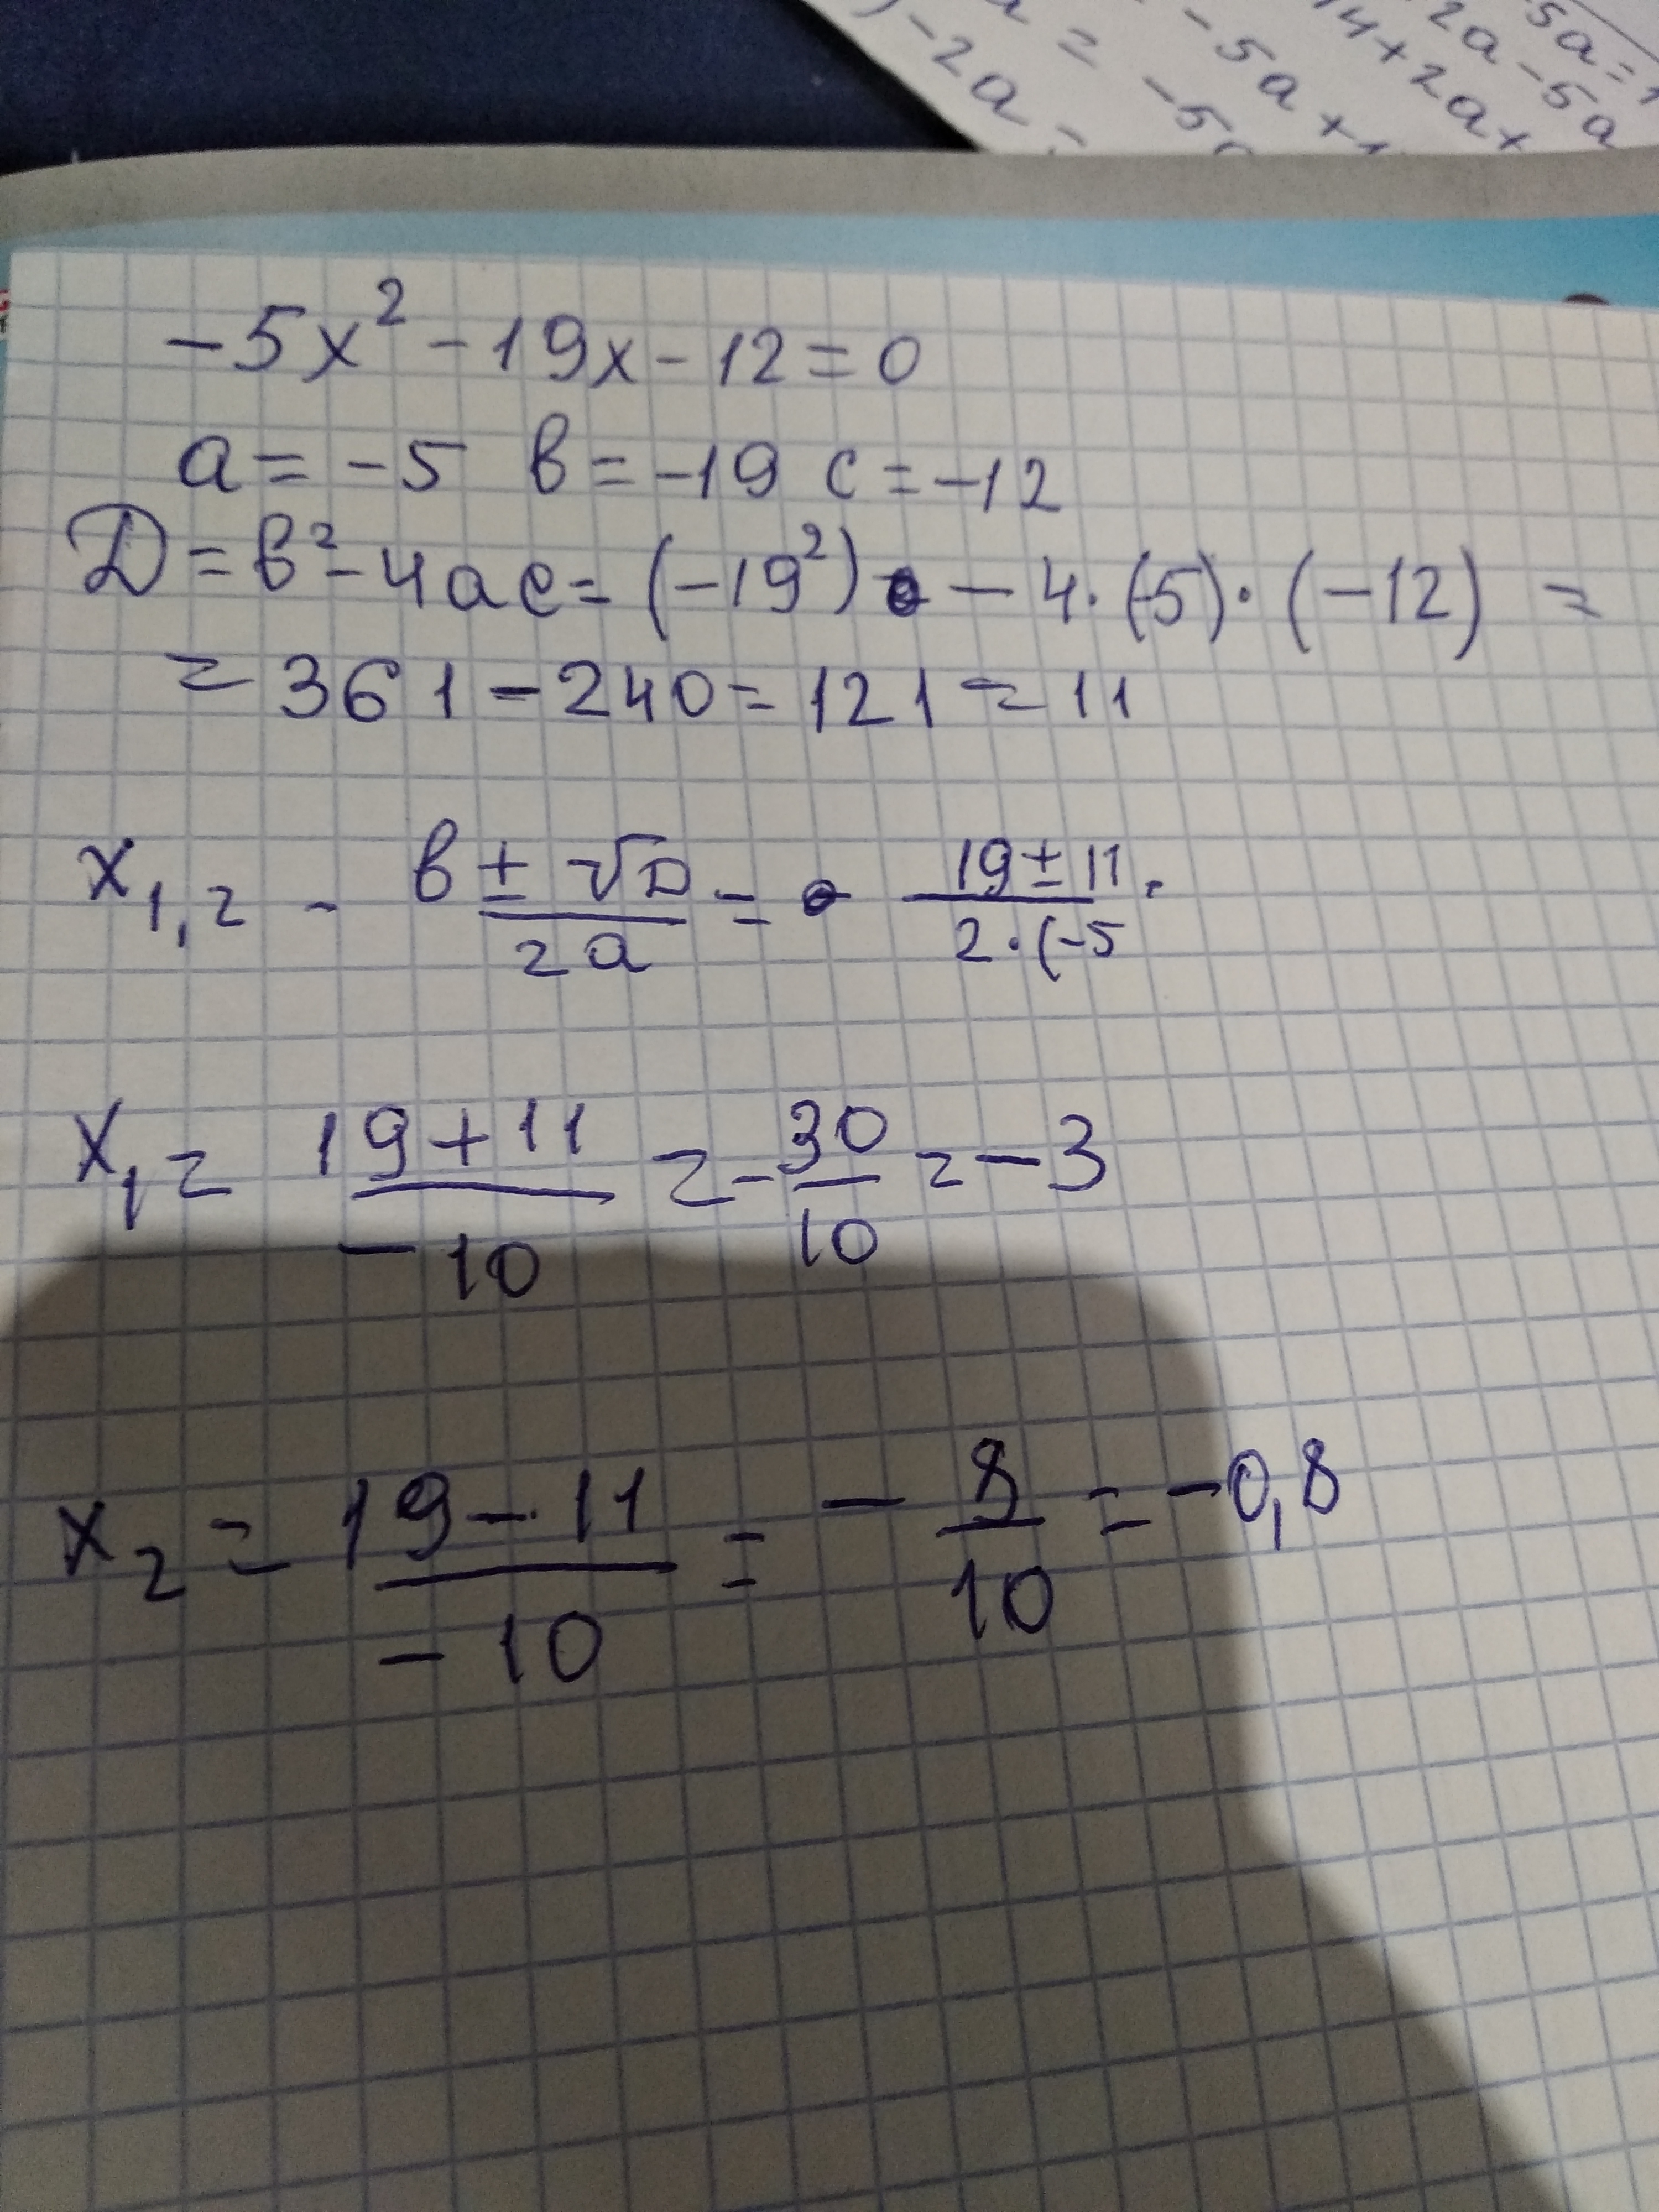 -5a=1
2a-5a
14+2a+
-5a+1
= -5a
)-2a=
-5x²-19x-12=0
a=-5 b=-19 c=-12
D=b²-4ac=(-19²) - 4·(-5)·(-12) =
=361-240=121=11
x₁,₂ - b±√D/2a = 19±11/2·(-5
x₁= 19+11/-10 =-30/10 =-3
x₂ = 19-11/-10 = - 8/10 = -0,8